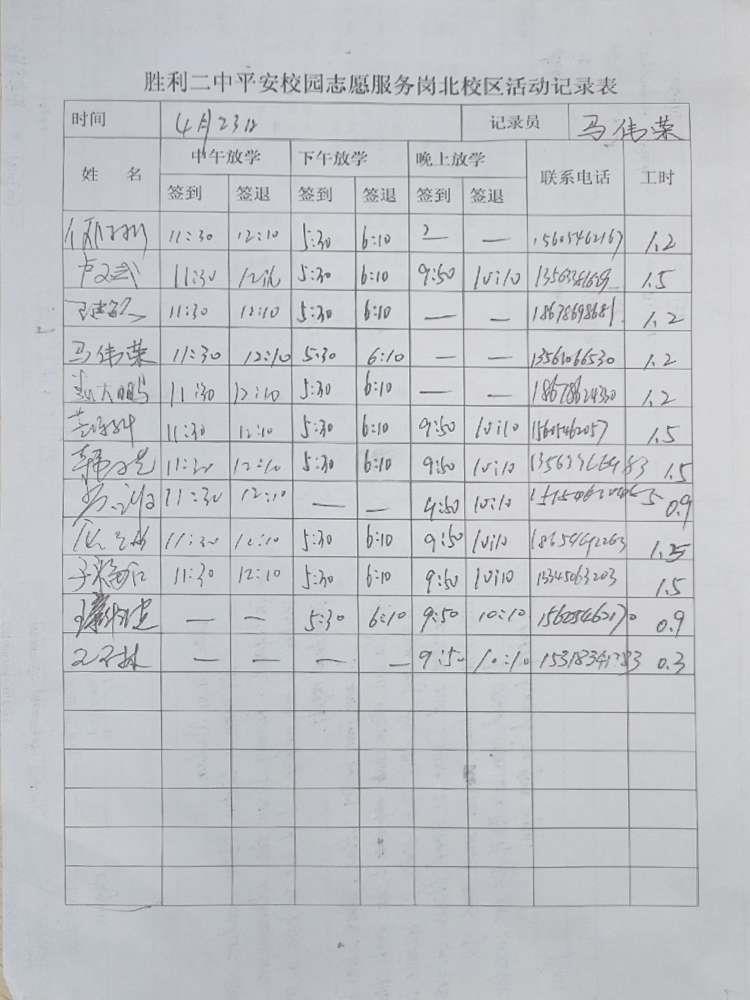 胜利二中平安校园志愿服务岗北校区活动记录表
时间 4月23日 记录员 马伟荣
姓 名 中午放学 下午放学 晚上放学 联系电话 工时
签到 签退 签到 签退 签到 签退
11:30 12:10 5:30 6:10 — 15605462167 1.2
11:30 5:30 6:10 9:50 10:10 1.5
11:30 12:10 5:30 6:10 — — 18678698681 1.2
马伟荣 11:30 12:10 5:30 6:10 — — 13561066530 1.2
11:30 12:10 5:30 6:10 — — 1.2
11:30 12:10 5:30 6:10 9:50 10:10 15605462057 1.5
11:30 12:10 5:30 6:10 9:50 10:10 1.5
11:30 12:10 — — 9:50 10:10 0.9
11:30 12:10 5:30 6:10 9:50 10:10 1.25
11:30 12:10 5:30 6:10 9:50 10:10 15345063203 1.5
— — 5:30 6:10 9:50 10:10 15605462170 0.9
— — — — 9:50 10:10 0.3